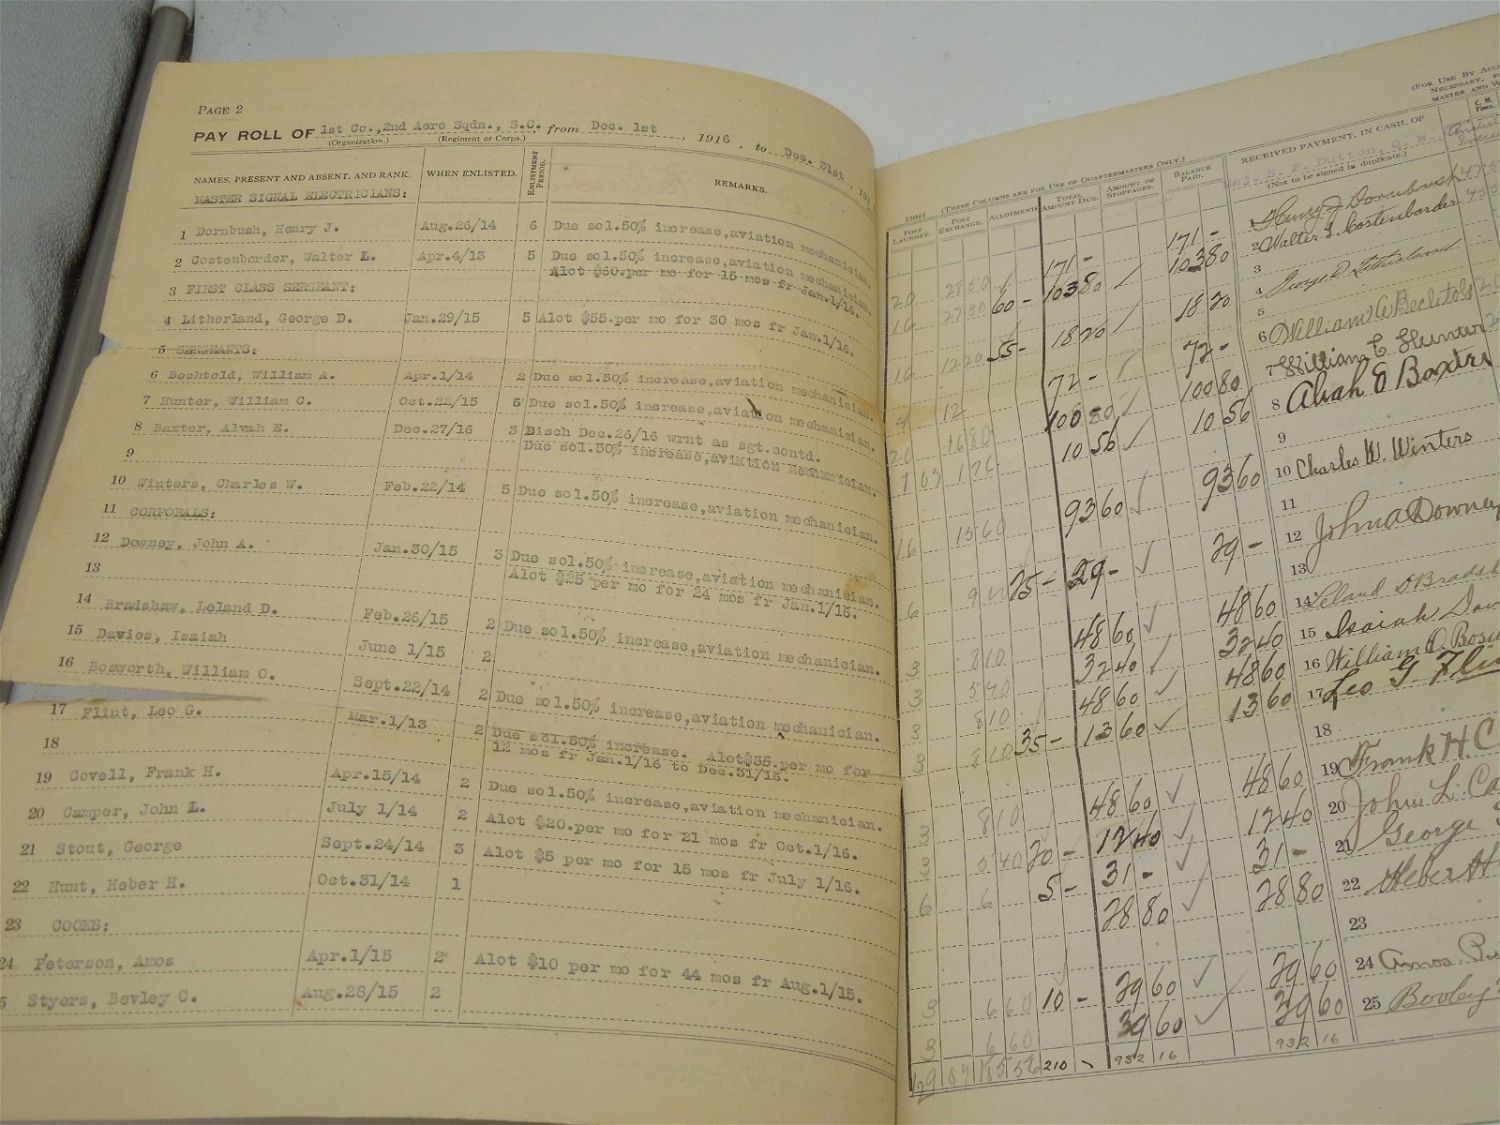 PAGE 2
PAY ROLL OF 1st Co., 2nd Aero Sqdn., S.C. from Dec. 1st, 1916, to Dec. 31st, 191
(Organization.) (Regiment or Corps.)
NAMES, PRESENT AND ABSENT, AND RANK. WHEN ENLISTED. ENLISTMENT PERIOD. REMARKS.
MASTER SIGNAL ELECTRICIANS:
1 Dornbush, Henry J. Aug.26/14 6 Due sol.50% increase,aviation mechanician.
2 Costenborder, Walter L. Apr.4/13 5 Due sol.50% increase,aviation mechanician.
Alot $60.per mo for 15 mos fr Jan.1/16.
3 FIRST CLASS SERGEANT:
4 Litherland, George D. Jan.29/15 5 Alot $55.per mo for 30 mos fr Jan.1/16.
5 SERGEANTS:
6 Bechtold, William A. Apr.1/14 2 Due sol.50% increase,aviation mechanician.
7 Hunter, William C. Oct.22/15 6 Due sol.50% increase,aviation mechanician.
8 Baxter, Alvah E. Dec.27/16 3 Disch Dec.26/16 wrnt as sgt.contd.
9 Due sol.50% increase,aviation mechanician.
10 Winters, Charles W. Feb.22/14 5 Due sol.50% increase,aviation mechanician.
11 CORPORALS:
12 Downey, John A. Jan.30/15 3 Due sol.50% increase,aviation mechanician.
13 Alot $25 per mo for 24 mos fr Jan.1/16.
14 Bradshaw, Leland D. Feb.26/15 2 Due sol.50% increase,aviation mechanician.
15 Davies, Isaiah June 1/15 2
16 Bosworth, William O. Sept.22/14 2 Due sol.50% increase,aviation mechanician.
17 Flint, Leo G. Mar.1/13 2 Due sol.50% increase. Alot$35.per mo for
18 12 mos fr Jan.1/16 to Dec.31/16.
19 Covell, Frank H. Apr.15/14 2 Due sol.50% increase,aviation mechanician.
20 Camper, John L. July 1/14 2 Alot $20.per mo for 21 mos fr Oct.1/16.
21 Stout, George Sept.24/14 3 Alot $5 per mo for 15 mos fr July 1/16.
22 Hunt, Heber H. Oct.31/14 1
23 COOKS:
24 Peterson, Amos Apr.1/15 2 Alot $10 per mo for 44 mos fr Aug.1/15.
5 Styers, Bevley C. Aug.28/15 2
(FOR USE BY
NECESSARY,
MASTER AND
(THESE COLUMNS ARE FOR USE OF QUARTERMASTERS ONLY.)
RECEIVED PAYMENT, IN CASH, OF
Maj. S. F. Dutton, Q. M.
(Not to be signed in duplicate.)
C. M. Fines.
POST LAUNDRY. POST EXCHANGE. ALLOTMENTS TOTAL AMOUNT DUE. AMOUNT OF STOPPAGES. BALANCE PAID.
20 171 - 171 - Henry J Dornbush
16 60 - 103 80 103 80 2 Walter L. Costenborder
3
16 12 20 55 - 18 20 18 20 4 George D. Litherland
5
4 12 - 72 - 72 - 6 William A Bechtold
20 16 80 100 80 100 80 7 William C Hunter
7 63 1 76 10 56 10 56 8 Alvah E Baxter
9
16 15 60 93 60 93 60 10 Charles W. Winters
11
6 25 - 29 - 29 - 12 John A Downey
13
3 8 10 48 60 48 60 14 Leland D Bradsh
3 5 40 32 40 32 40 15 Isaiah Dav
3 8 10 48 60 48 60 16 William O. Bosw
3 8 10 35 - 13 60 13 60 17 Leo G. Flin
18
3 8 10 48 60 48 60 19 Frank H. C
3 5 40 20 - 12 40 12 40 20 John L. Ca
6 6 5 - 31 - 31 - 21 George
28 80 28 80 22 Heber H
23
3 6 60 10 - 29 60 29 60 24 Amos
3 6 60 39 60 39 60 25
210 932 16 932 16